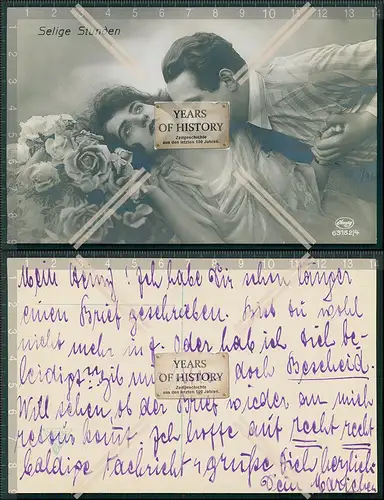 Selige Stunden
YEARS
OF HISTORY
Zeitgeschichte
aus den letzten 100 Jahren.
63152/4
Mein ! Ich habe Dir schon länger
einen Brief geschrieben. Bist du wohl
nicht mehr in f. Oder hab ich Dich be-
leidigt? doch Bescheid.
YEARS
OF HISTORY
Zeitgeschichte
aus den letzten 100 Jahren.
Will sehen ob der Brief wieder an mich
retour kommt. Ich hoffe auf recht recht
baldige Nachricht & grüße Dich herzlich
Dein